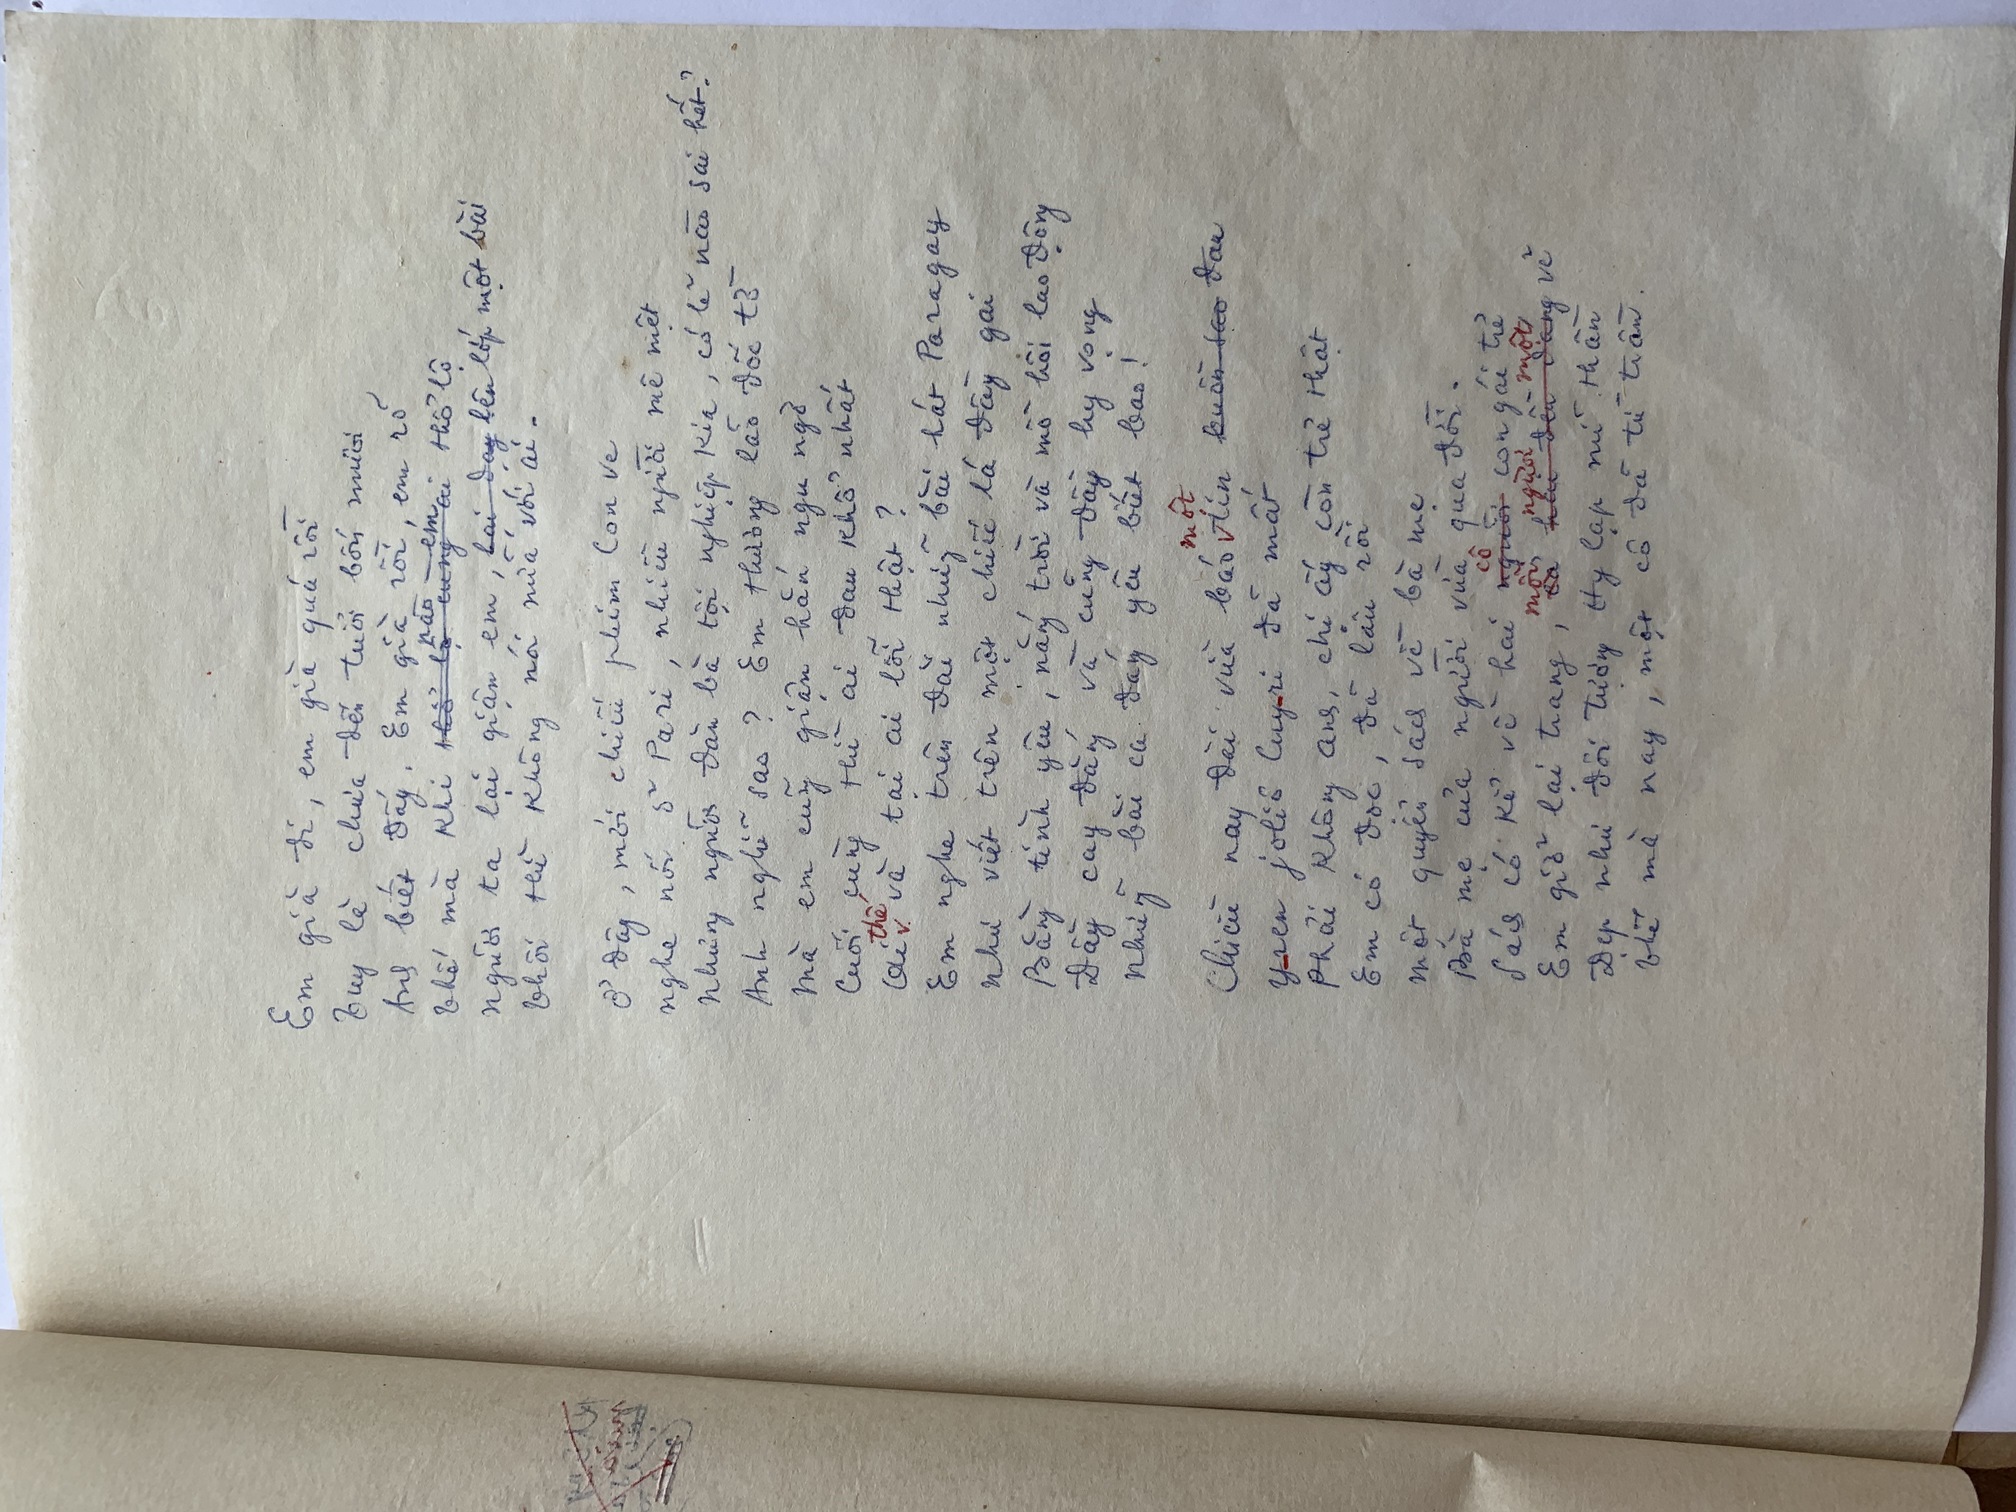 Em già đi, em già quá rồi
Tuy là chưa đến tuổi bốn mươi
Anh biết đấy. Em già rồi, em rõ
Thế mà khi thổ lộ cùng ai thổ lộ
nào em
Người ta lại giận em, hai đay lên lớp một bài
Thôi thì không nói nữa với ai.
Ở đây, mới chiếu phim Con ve
nghe nói ở Pari, nhiều người mê mệt
Những người đàn bà tội nghiệp kia, có lẽ nào sai hết?
Anh nghĩ sao? Em thương lão đốc tờ
Mà em cũng giận hắn ngu ngơ
Cuối cùng thì ai đau khổ nhất
thế
Và tại ai lỗi thật?
Em nghe trên đài những bài hát Paragay
Như viết trên một chiếc lá đầy gai
Bằng tình yêu, nắng trời và mồ hôi lao động
Đầy cay đắng và cũng đầy hy vọng
Những bài ca đáng yêu biết bao!
một
Chiều nay đài vừa báo tin buồn sao đau
Yren Joliô Quyri đã mất
Phải không anh, chị ấy còn trẻ thật
Em có đọc, đã lâu rồi
Một quyển sách về bà mẹ
Bà mẹ của người vừa qua đời.
cô
Sách có kể về hai người con gái trẻ
mỗi người một
Em giở lại trang, cả hai đến đang vẻ
Đẹp như đôi tượng Hy Lạp nữ thần
Thế mà nay, một cô đã từ trần.